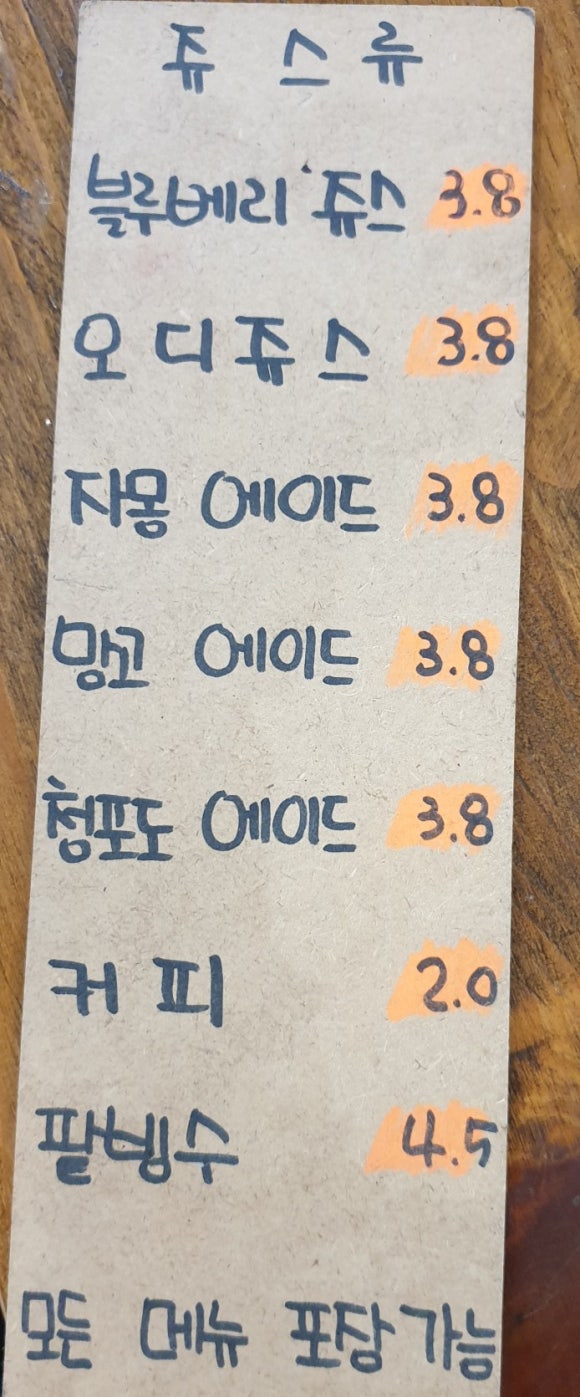 쥬스류
블루베리 쥬스 3.8
오디쥬스 3.8
자몽 에이드 3.8
망고 에이드 3.8
청포도 에이드 3.8
커피 2.0
팥빙수 4.5
모든 메뉴 포장가능